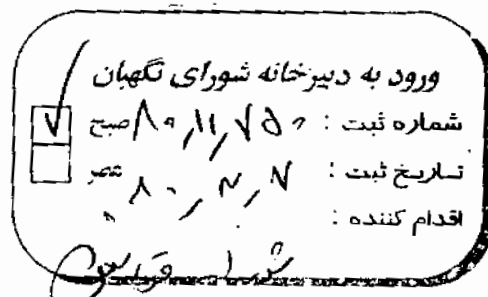 ورود به دبیرخانه شورای نگهبان
شماره ثبت : ۸۰٫۱۱٫۷۵۰ صبح
تاریخ ثبت : عصر
اقدام کننده :